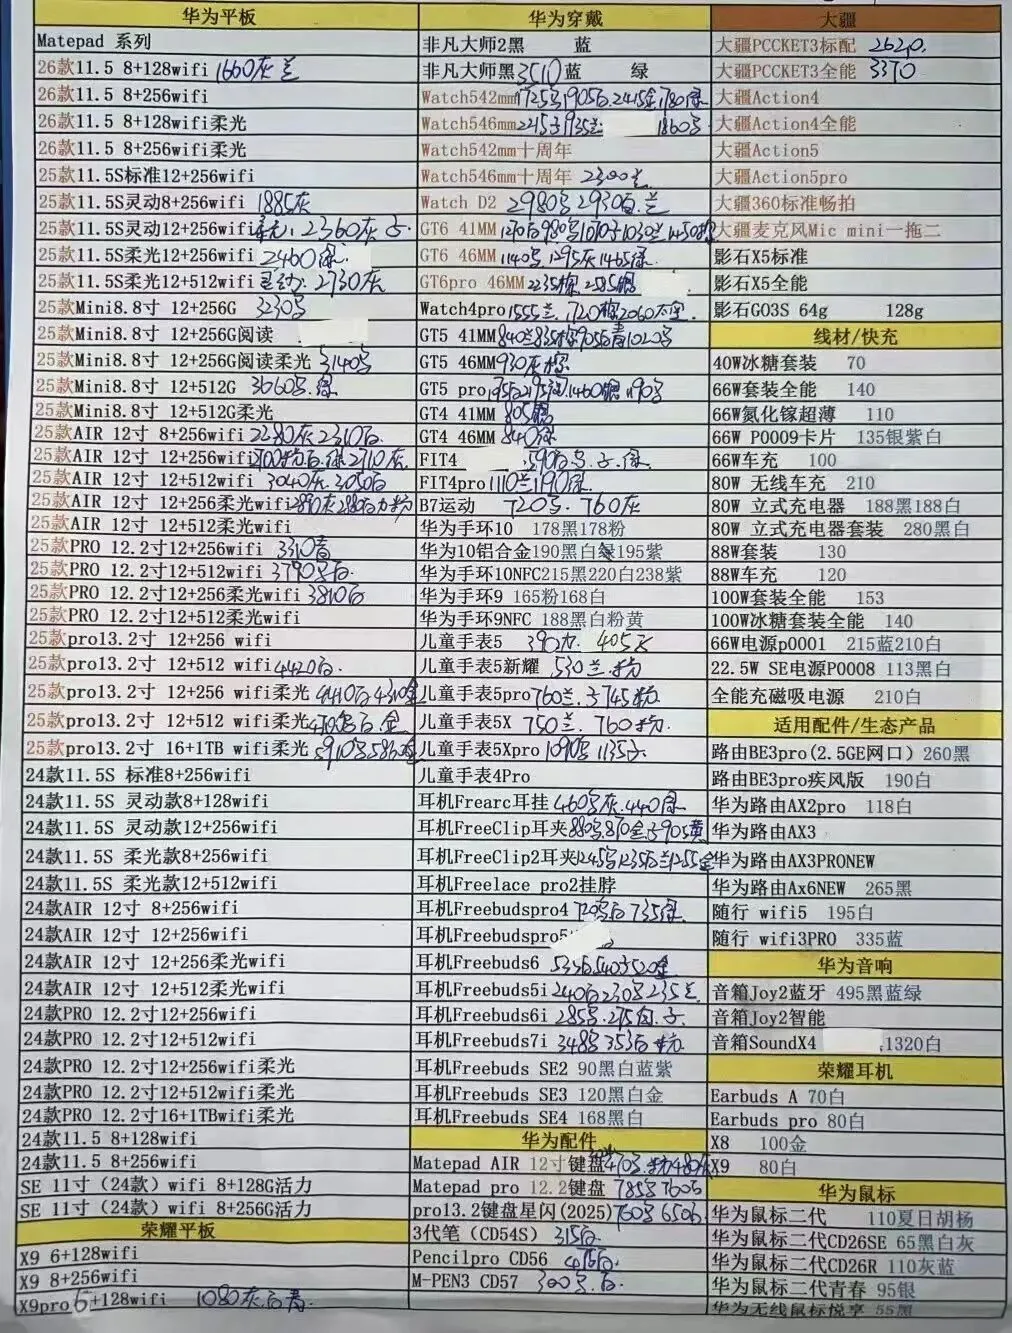 华为平板
Matepad 系列
26款11.5 8+128wifi 1660灰兰
26款11.5 8+256wifi
26款11.5 8+128wifi柔光
26款11.5 8+256wifi柔光
25款11.5S标准12+256wifi
25款11.5S灵动8+256wifi 1885灰
25款11.5S灵动12+256wifi 2360灰
25款11.5S柔光12+256wifi 2460绿
25款11.5S柔光12+512wifi 2730灰
25款Mini8.8寸 12+256G 3230
25款Mini8.8寸 12+256G阅读
25款Mini8.8寸 12+256G阅读柔光 3140
25款Mini8.8寸 12+512G 3660
25款Mini8.8寸 12+512G柔光
25款AIR 12寸 8+256wifi 2280灰2310白
25款AIR 12寸 12+256wifi 2710灰
25款AIR 12寸 12+512wifi 3040灰.3050白
25款AIR 12寸 12+256柔光wifi
25款AIR 12寸 12+512柔光wifi
25款PRO 12.2寸12+256wifi 3310青
25款PRO 12.2寸12+512wifi 3790
25款PRO 12.2寸12+256柔光wifi 3810白
25款PRO 12.2寸12+512柔光wifi
25款pro13.2寸 12+256 wifi
25款pro13.2寸 12+512 wifi 4420白.
25款pro13.2寸 12+256 wifi柔光
25款pro13.2寸 12+512 wifi柔光
25款pro13.2寸 16+1TB wifi柔光
24款11.5S 标准8+256wifi
24款11.5S 灵动款8+128wifi
24款11.5S 灵动款12+256wifi
24款11.5S 柔光款8+256wifi
24款11.5S 柔光款12+512wifi
24款AIR 12寸 8+256wifi
24款AIR 12寸 12+256wifi
24款AIR 12寸 12+256柔光wifi
24款AIR 12寸 12+512柔光wifi
24款PRO 12.2寸 12+256wifi
24款PRO 12.2寸 12+512wifi
24款PRO 12.2寸 12+256wifi柔光
24款PRO 12.2寸 12+512wifi柔光
24款PRO 12.2寸16+1TBwifi柔光
24款11.5 8+128wifi
24款11.5 8+256wifi
SE 11寸（24款）wifi 8+128G活力
SE 11寸（24款）wifi 8+256G活力
荣耀平板
X9 6+128wifi
X9 8+256wifi
X9pro 6+128wifi 1080灰白青.
华为穿戴
非凡大师2黑 蓝
非凡大师黑3510蓝 绿
Watch542mm
Watch546mm
Watch542mm十周年
Watch546mm十周年 2300兰
Watch D2 2980 2930
GT6 41MM
GT6 46MM
GT6pro 46MM
Watch4pro
GT5 41MM
GT5 46MM 930灰
GT5 pro
GT4 41MM 805
GT4 46MM 840绿
FIT4
FIT4pro 1110兰1190绿
B7运动 720.760灰
华为手环10 178黑178粉
华为10铝合金190黑白 195紫
华为手环10NFC215黑220白238紫
华为手环9 165粉168白
华为手环9NFC 188黑白粉黄
儿童手表5 390 405
儿童手表5新耀 530兰.粉
儿童手表5pro 760兰. 745粉
儿童手表5X 750兰. 760粉.
儿童手表5Xpro
儿童手表4Pro
耳机Frearc耳挂 460 灰.440绿
耳机FreeClip耳夹
耳机FreeClip2耳夹
耳机Freelace pro2挂脖
耳机Freebudspro4 735绿
耳机Freebudspro5
耳机Freebuds6
耳机Freebuds5i 240白230 235兰
耳机Freebuds6i 285 .275白
耳机Freebuds7i 348 353白 粉.
耳机Freebuds SE2 90黑白蓝紫
耳机Freebuds SE3 120黑白金
耳机Freebuds SE4 168黑白
华为配件
Matepad AIR 12寸键盘
Matepad pro 12.2键盘 785 760白
pro13.2键盘星闪(2025)
3代笔（CD54S） 315白
Pencilpro CD56 475白
M-PEN3 CD57 300 .白.
大疆
大疆PCCKET3标配 2620.
大疆PCCKET3全能 3370
大疆Action4
大疆Action4全能
大疆Action5
大疆Action5pro
大疆360标准畅拍
大疆麦克风Mic mini一拖二
影石X5标准
影石X5全能
影石GO3S 64g 128g
线材/快充
40W冰糖套装 70
66W套装全能 140
66W氮化镓超薄 110
66W P0009卡片 135银紫白
66W车充 100
80W 无线车充 210
80W 立式充电器 188黑188白
80W 立式充电器套装 280黑白
88W套装 130
88W车充 120
100W套装全能 153
100W冰糖套装全能 140
66W电源p0001 215蓝210白
22.5W SE电源P0008 113黑白
全能充磁吸电源 210白
适用配件/生态产品
路由BE3pro(2.5GE网口）260黑
路由BE3pro疾风版 190白
华为路由AX2pro 118白
华为路由AX3
华为路由AX3PRONEW
华为路由Ax6NEW 265黑
随行 wifi5 195白
随行 wifi3PRO 335蓝
华为音响
音箱Joy2蓝牙 495黑蓝绿
音箱Joy2智能
音箱SoundX4 .1320白
荣耀耳机
Earbuds A 70白
Earbuds pro 80白
X8 100金
X9 80白
华为鼠标
华为鼠标二代 110夏日胡杨
华为鼠标二代CD26SE 65黑白灰
华为鼠标二代CD26R 110灰蓝
华为鼠标二代青春 95银
华为无线鼠标悦享 55黑